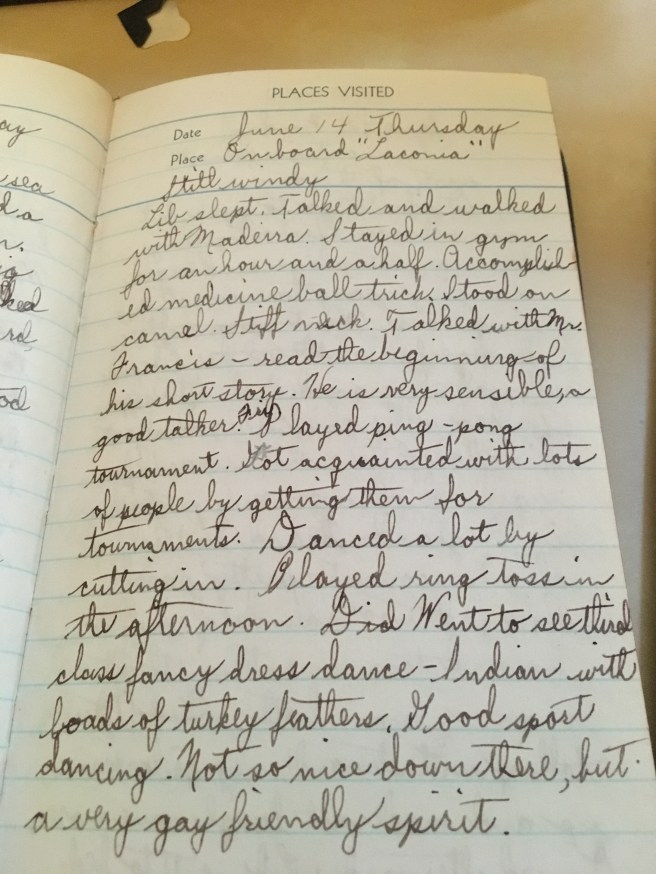 PLACES VISITED
Date June 14 Thursday
Place On board "Laconia"
Still windy
Lib slept. Talked and walked
with Madeira. Stayed in gym
for an hour and a half. Accomplish-
ed medicine ball trick. Stood on
camel. Stiff neck. Talked with Mr.
Francis – read the beginning of
his short story. He is very sensible, a
good talker. Played ping-pong
tournament. Got acquainted with lots
of people by getting them for
tournaments. Danced a lot by
cutting in. Played ring toss in
the afternoon. Did Went to see third
class fancy dress dance – Indian with
loads of turkey feathers. Good sport
dancing. Not so nice down there, but
a very gay friendly spirit.
ay
sea
d a
n.
ked
rd,
od